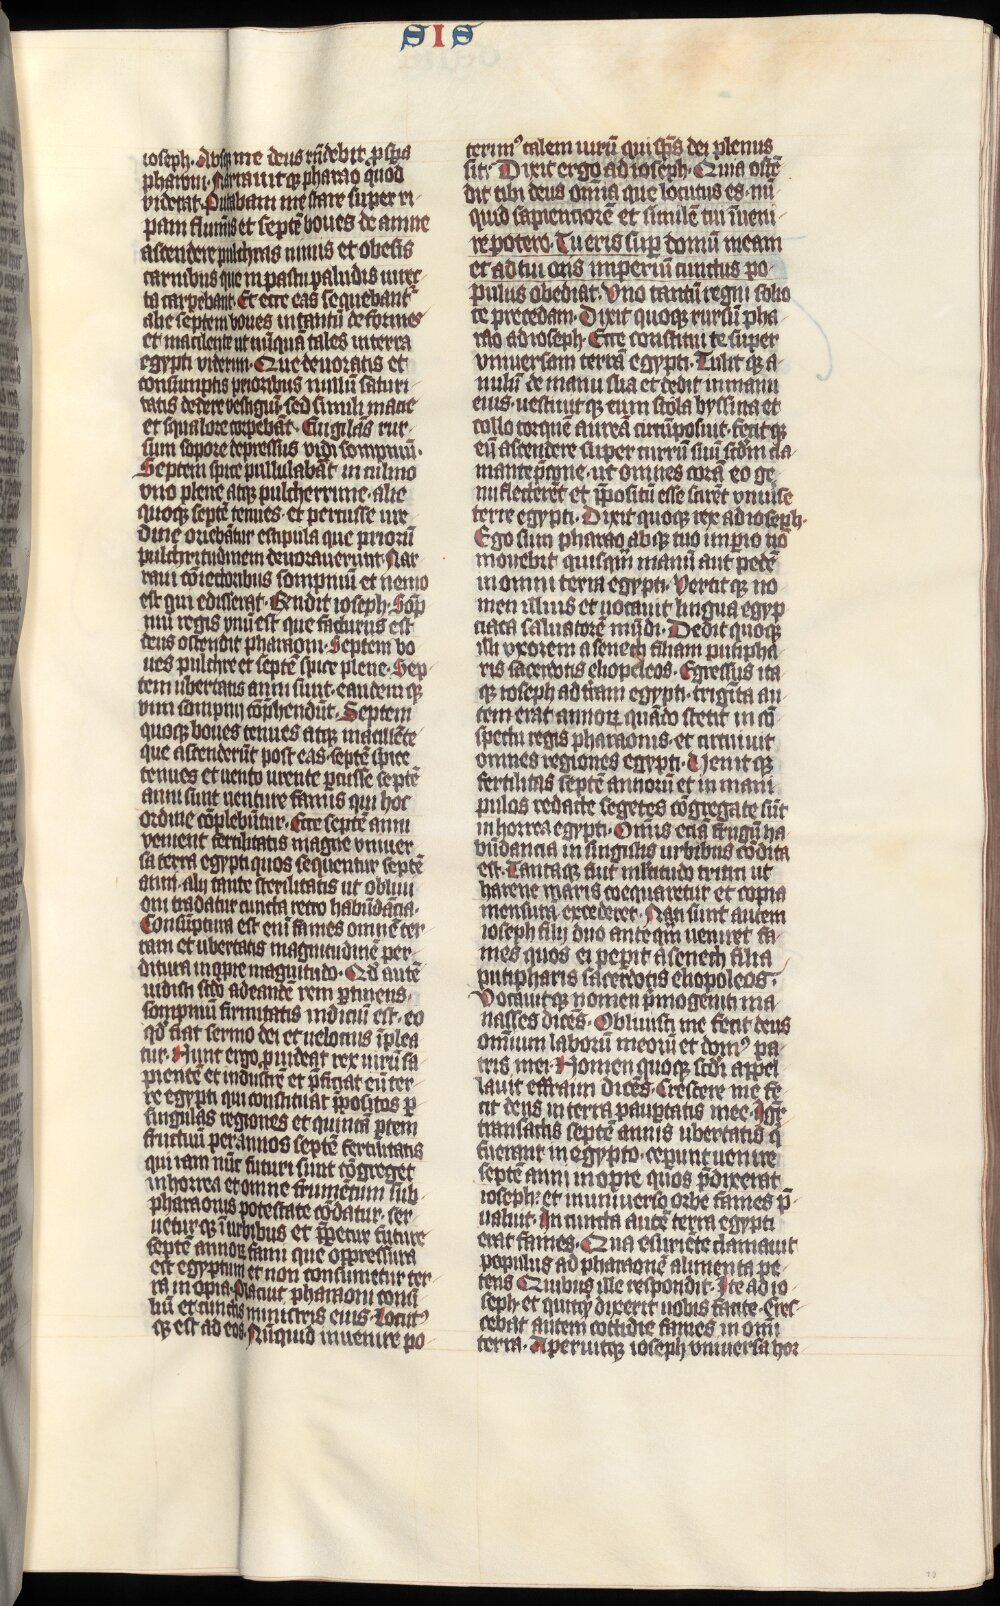 SIS
ioseph. Absq; me deus rn̄debit p̄spa
pharoni. Narrauitq; pharao quod
viderat. Putabam me stare super ri
pam fluminis et septē boues de amne
ascendere pulchras nimis et obesis
carnibus que in pastu paludis virec
ta carpebant. Et ecce eas sequebant
alie septem boues in tantū deformes
et macilente ut nūquā tales in terra
egypti viderim. Que deuoratis et
consumptis prioribus nullū saturi
tatis dedere vestigiū. sed simili macie
et squalore torpebāt. Euigilās rur
sum sopore depressus vidi sompniū.
Septem spice pullulabāt in culmo
vno plene atq; pulcherrime. alie
quoq; septē tenues. et percusse vre
dine oriebātur e stipula que priorū
pulchritudinem deuorauerunt. Nar
raui cōiectoribus sompniū et nemo
est qui edisserat. Rendit ioseph. Sōp
niū regis vnū est que facturus est
deus ostendit pharaoni. Septem bo
ues pulchre et septē spice plene. Sep
tem ubertatis anni sunt. eandemq;
vim sompnij cōphendūt. Septem
quoq; boues tenues atq; macilēte
que ascenderūt post eas. septē spice
tenues et vento vrente p̄cusse septē
anni sunt venture famis qui hoc
ordine cōplebūtur. Ecce septē anni
venient fertilitatis magne vniuer
sa terra egypti quos sequentur septē
anni. alij tante sterilitatis ut obliui
oni tradatur cuncta retro habūdācia.
Consūptura est eni fames omnē ter
ram et ubertatis magnitudinē per
ditura inopie magnitudo. Qd autē
vidisti scdo ad eandē rem ptinens.
sompniū firmitatis indiciū est. eo
qd fiat sermo dei et velocius īplea
tur. Nunc ergo puideat rex virū sa
pientē et industrē et pficiat eū ter
re egypti qui constituat ppositos p
singulas regiones et quintā ptem
fructuū per annos septē fertilitatis
qui iam nūc futuri sunt cōgreget
in horrea et omne frumētum sub
pharaonis potestate cōdatur. ser
ueturq; ī urbibus et ppetur future
septē annoꝝ fami que oppressura
est egyptum et non consumetur ter
ra in opia. Placuit pharaoni consi
liū et cunctis ministris eius. Locut᾽
q; est ad eos. Nūquid inuenire po
terim᾽ talem virū qui spū dei plenus
sit. Dixit ergo ad ioseph. Quia ostē
dit tibi deus omīa que locutus es. nū
quid sapientiorē et similē tui īueni
re potero. Tu eris sup domū meam
et ad tui oris imperiū cunctus po
pulus obediat. Vno tantū regni solio
te precedam. Dixit quoq; rursū pha
rao ad ioseph. Ecce constitui te super
vniuersam terrā egypti. Tulitq; a
nulū de manu sua et dedit in manu
eius. vestiuitq; eum stola byssina et
collo torquē aureā circūposuit. fecitq;
eū ascendere super currū suū scdm cla
mante pcone. ut omnes corā eo ge
nuflecterēt et ppositū esse scirēt vniūse
terre egypti. Dixit quoq; rex ad ioseph.
Ego sum pharao absq; tuo impio nō
mouebit quisqm̄ manū aut pedē
in omni terra egypti. Vertitq; no
men illius et vocauit lingua egyp
ciaca saluatorē mūdi. Dedit quoq;
illi vxorem asenech filiam putipha
ris sacerdotis eliopoleos. Egressus ita
q; ioseph ad trām egypti. triginta an
tem erat annoꝝ quādo stetit in cō
spectu regis pharaonis. et circuiuit
omnes regiones egypti. Uenitq;
fertilitas septē annorū et in mani
pulos redacte segetes cōgregate sūt
in horrea egypti. Omnis eciā frugū ha
būdancia in singulis urbibus cōdita
est. Tantaq; fuit multitudo tritici ut
harene maris coequaretur et copia
mensurā excederet. Nati sunt autem
ioseph filij duo ante qm̄ veniret fa
mes quos ei peperit asenech filia
putipharis sacerdotis eliopoleos.
Vocauitq; nomen pmogeniti ma
nasses dicēs. Obliuisci me fecit deus
omnium laborū meorū et dom᾽ pa
tris mei. Nomen quoq; scdi appel
lauit effraim dicēs. Crescere me fe
cit deus in terra pauptatis mee. Igr
transactis septē annis ubertatis q
fuerant in egypto. ceperunt venire
septē anni inopie quos pdixerat
ioseph. et in uniuerso orbe fames p
ualuit. In cuncta autē terra egypti
erat fames. Qua esuriēte clamauit
populus ad pharaonē alimenta pe
tens Quibus ille respondit. Ite ad io
seph et quicq dixerit uobis facite. Cres
cebat autem cottidie fames in omī
terra. Aperuitq; ioseph vniuersa hor